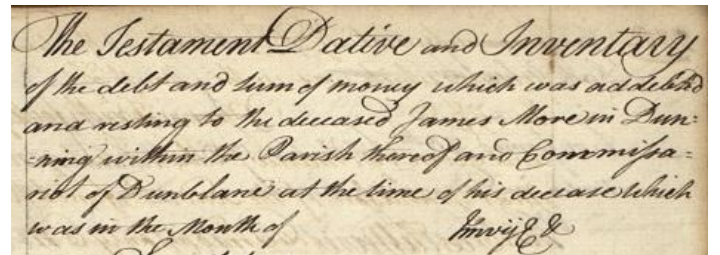 The Testament Dative and Inventary
of the debt and sum of money which was addebted
and resting to the deceased James More in Dun=
=ning within the Parish thereof and Commissa=
riot of Dunblane at the time of his decease which
was in the Month of